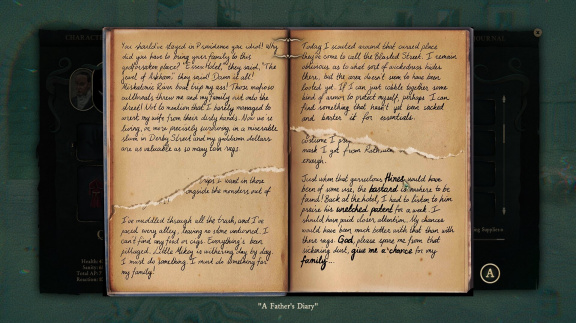 You should've stayed in Providence you idiot! Why
did you have to bring your family to this
godforsaken place? "Eisen Hotel," they said, "The
jewel of Arkham," they said! Damn it all!
Miskatonic River boat trip my ass! Those mafioso
cutthroats threw me and my family out onto the
street! Not to mention that I barely managed to
wrest my wife from their dirty hands. Now we're
living, or more precisely surviving, in a miserable
slum in Derby Street and my goddamn dollars
are as valuable as so many torn rags.
I want in those
alongside the monsters out of
I've meddled through all the trash, and I've
paced every alley, leaving no stone unturned. I
can't find any food or cigs. Everything's been
pillaged. Little Mikey is withering day by day.
I must do something. I must do something for
my family!
Today I scouted around that cursed place
they've come to call the Blasted Street. I remain
oblivious as to what sort of wickedness hides
there, but the area doesn't seem to have been
looted yet. If I can just cobble together some
kind of armor to protect myself, perhaps I can
find something that hasn't yet been sacked
and barter it for essentials.
costume I
mask I got from
enough.
Just when that garrulous Hines would have
been of some use, the bastard is nowhere to be
found! Back at the hotel, I had to listen to him
praise his wretched patent for a week. I
should have paid closer attention. My chances
would have been much better with that than with
these rags. God, please spare me from that
sickening dust, give me a chance for my
family...
"A Father's Diary"
A